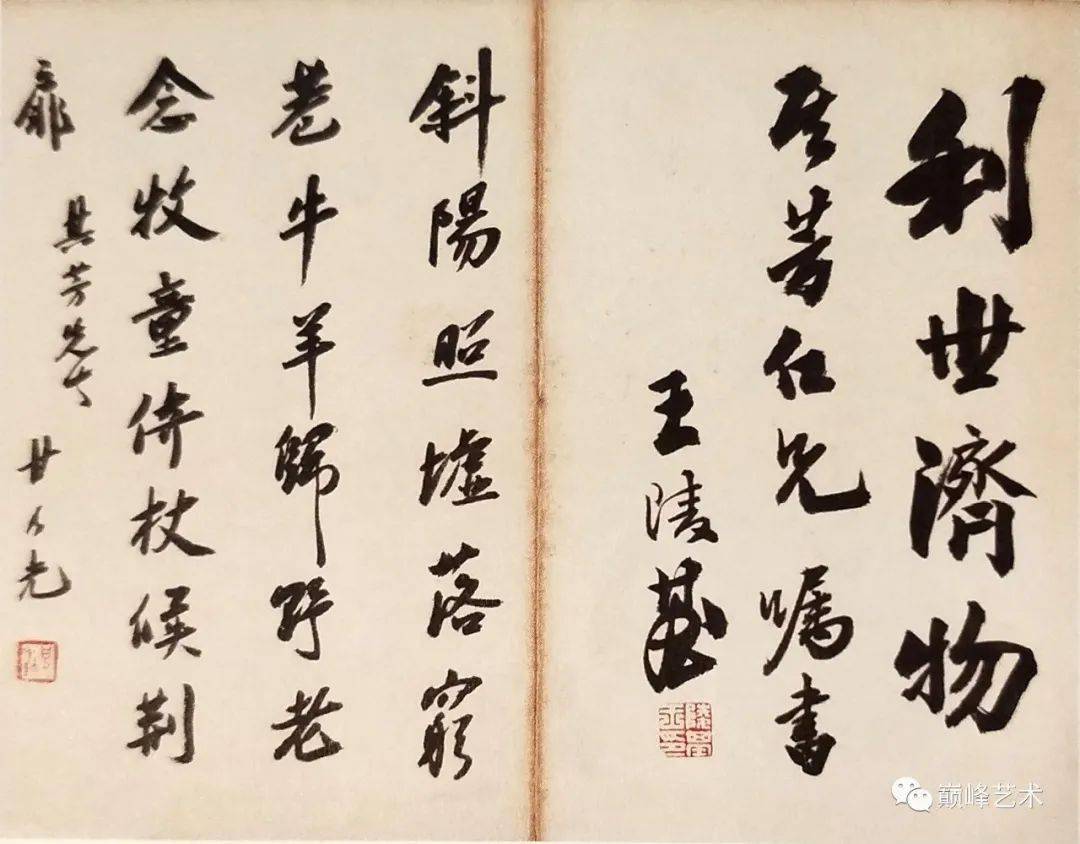 利世濟物
其芳仁兄嘱書
王陵基
斜陽照墟落窮
巷牛羊歸野老
念牧童倚杖候荆
扉
其芳先生
巅峰艺术